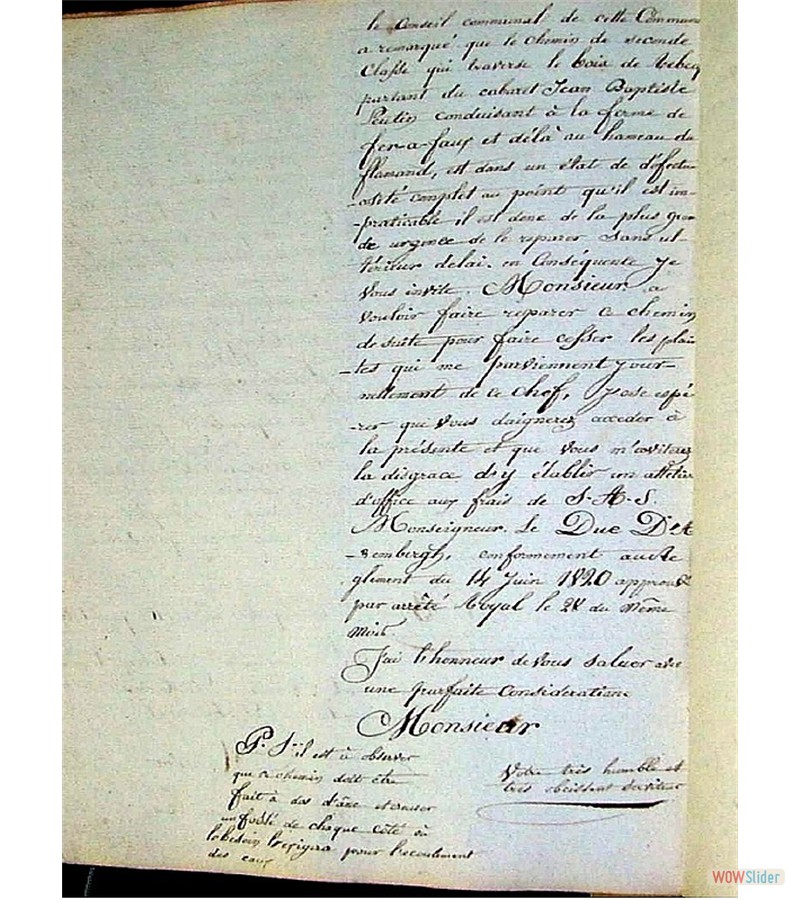 le Conseil communal de cette Commune
a remarqué que le chemin de seconde
Classe qui traverse le bois de Rebecq
partant du cabaret Jean Baptiste
conduisant à la ferme de
fer-a-faux et délà au hameau du
flamand, est dans un état de défectu
-osité complet au point qu'il est im-
-praticable il est donc de la plus gran
de urgence de le reparer sans ul-
térieur delai. en Conséquente je
Vous invite. Monsieur a
vouloir faire reparer ce chemin
de suite pour faire cesser les plain
-tes qui me parviennent jour-
nellement de ce chef, j'ose espé
-rer que vous daignerez acceder à
la présente et que vous m'eviterez
la disgrace d'y établir un attelier
d'office aux frais de S-A-S.
Monseigneur. Le Duc D'A
-rembergh, conformement au Re
glement du 14 Juin 1820 approuvé
par arrêté Royal le 28 du même
mois.
J'ai l'honneur de vous saluer avec
une parfaite consideratione
Monsieur
Votre très humble et
très obeissant serviteur
P. S. il est à observer
que ce chemin doit être
fait à dos d'âne et creuser
un fossé de chaque côté où
le besoin l'exigera pour l'ecoulement
des eaux
WOWSlider